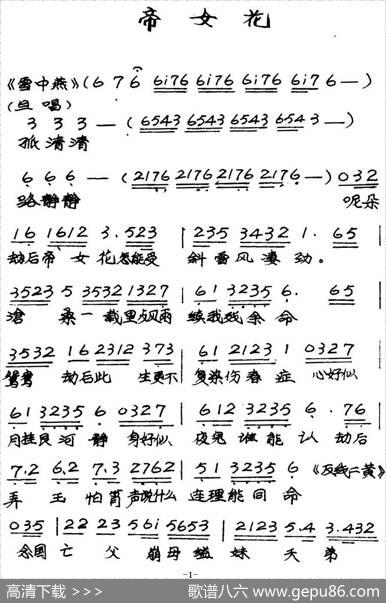 帝女花
《雪中燕》(6 7 6 6i76 6i76 6i76 6i7 6 —)
(旦唱)
3 3 3 — (6543 6543 6543 654 3 —)
孤清清
6 6 6 — (2176 2176 2176 2176 —) 032
路静静 呢朵
16 1612 3. 523 | 235 3432 1. 65 |
劫后帝女花怎能受 斜雪风凄劲。
3523 5 3532 1327 | 61 3235 6. 65 |
沧桑一载里 风雨 续我残余命
3532 16 2312 373 | 61 2123 1 0327 |
鸳鸯 劫后此生更不 复染伤春症 心好似
61 3235 6 0327 | 612 3235 6. 76 |
月挂银河静 身好似 夜鬼谁能认 劫后
7.2 6.2 7.3 2762 | 51 3235 6 《反线二黄》
弄玉怕箫声说什么 连理能同命
035 | 22 23 56i 5653 | 2123 5.4 3.432
国亡父崩母 妹夭弟
-1-
高清下载 >>> 歌谱八六 www.gepu86.com